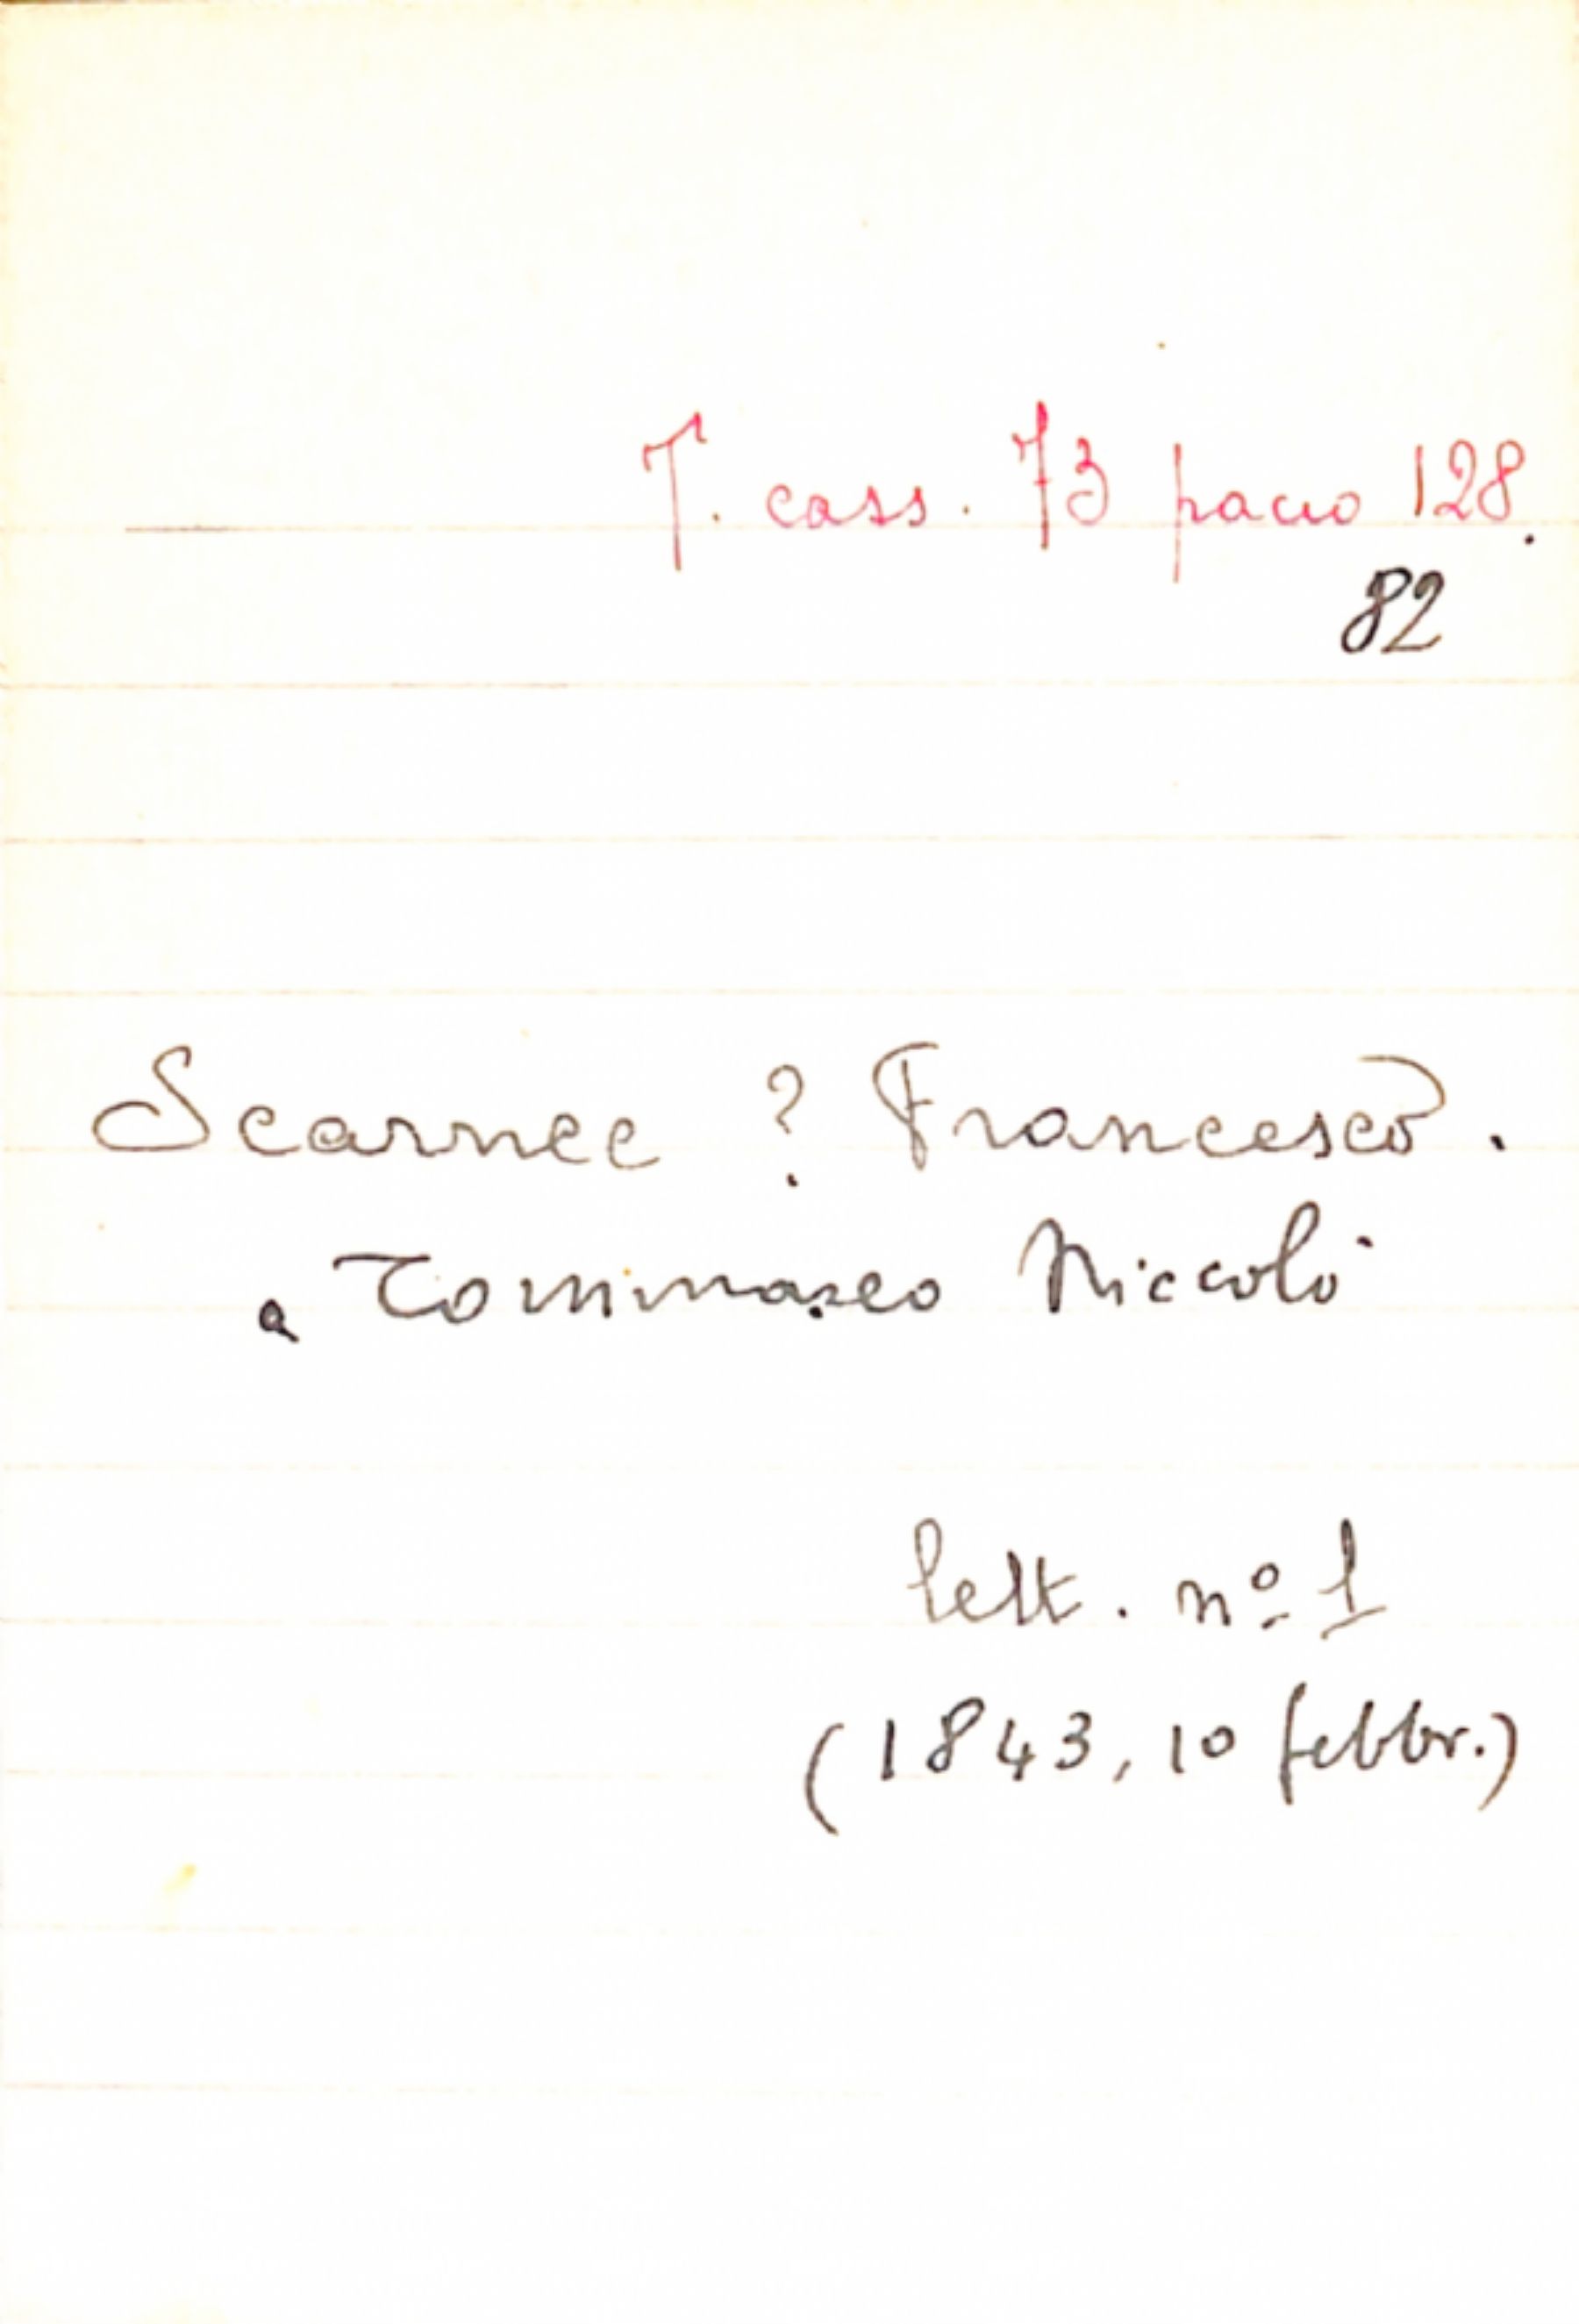 T. cass. 73 pacco 128.
82
Scarnec ? Francesco.
a Tommaseo Niccolò
lett. nº 1
(1843, 10 febbr.)